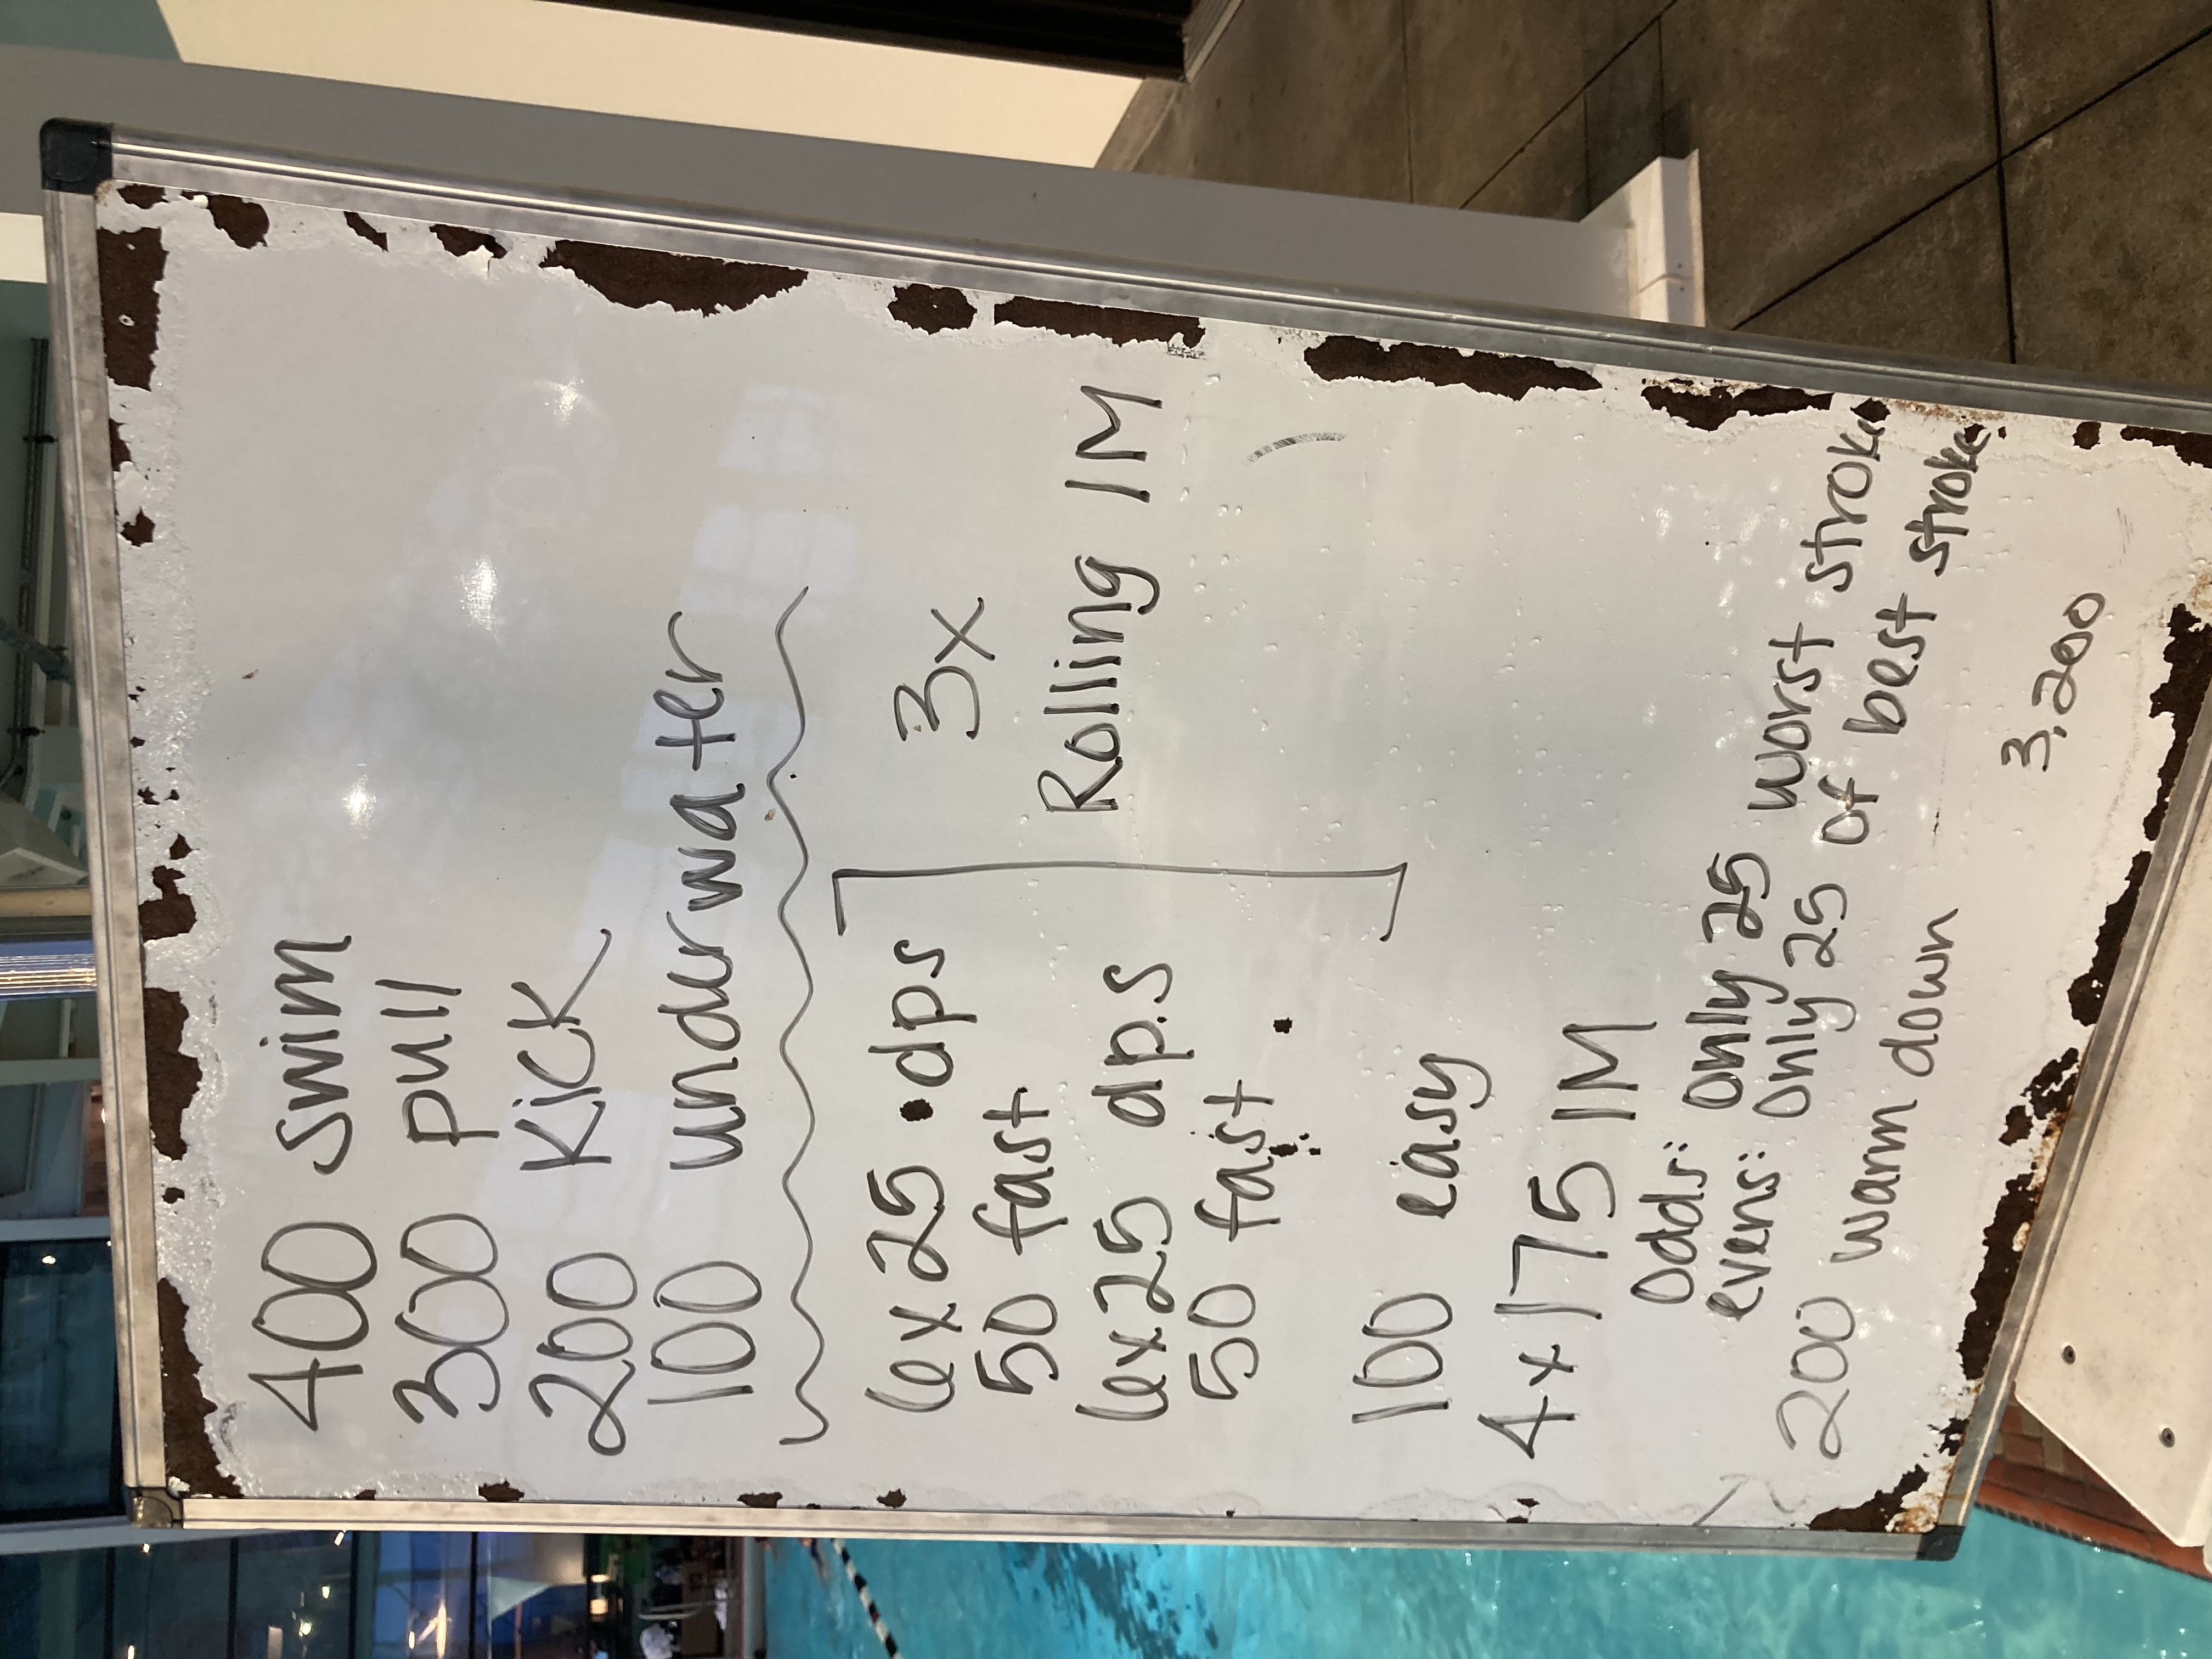 400 swim
300 pull
200 Kick
100 underwater
6x25 dps
50 fast
6x25 dps
50 fast
3x
Rolling IM
100 easy
4x175 IM
Odds: only 25 worst stroke
evens: only 25 of best stroke
200 warm down
3,200